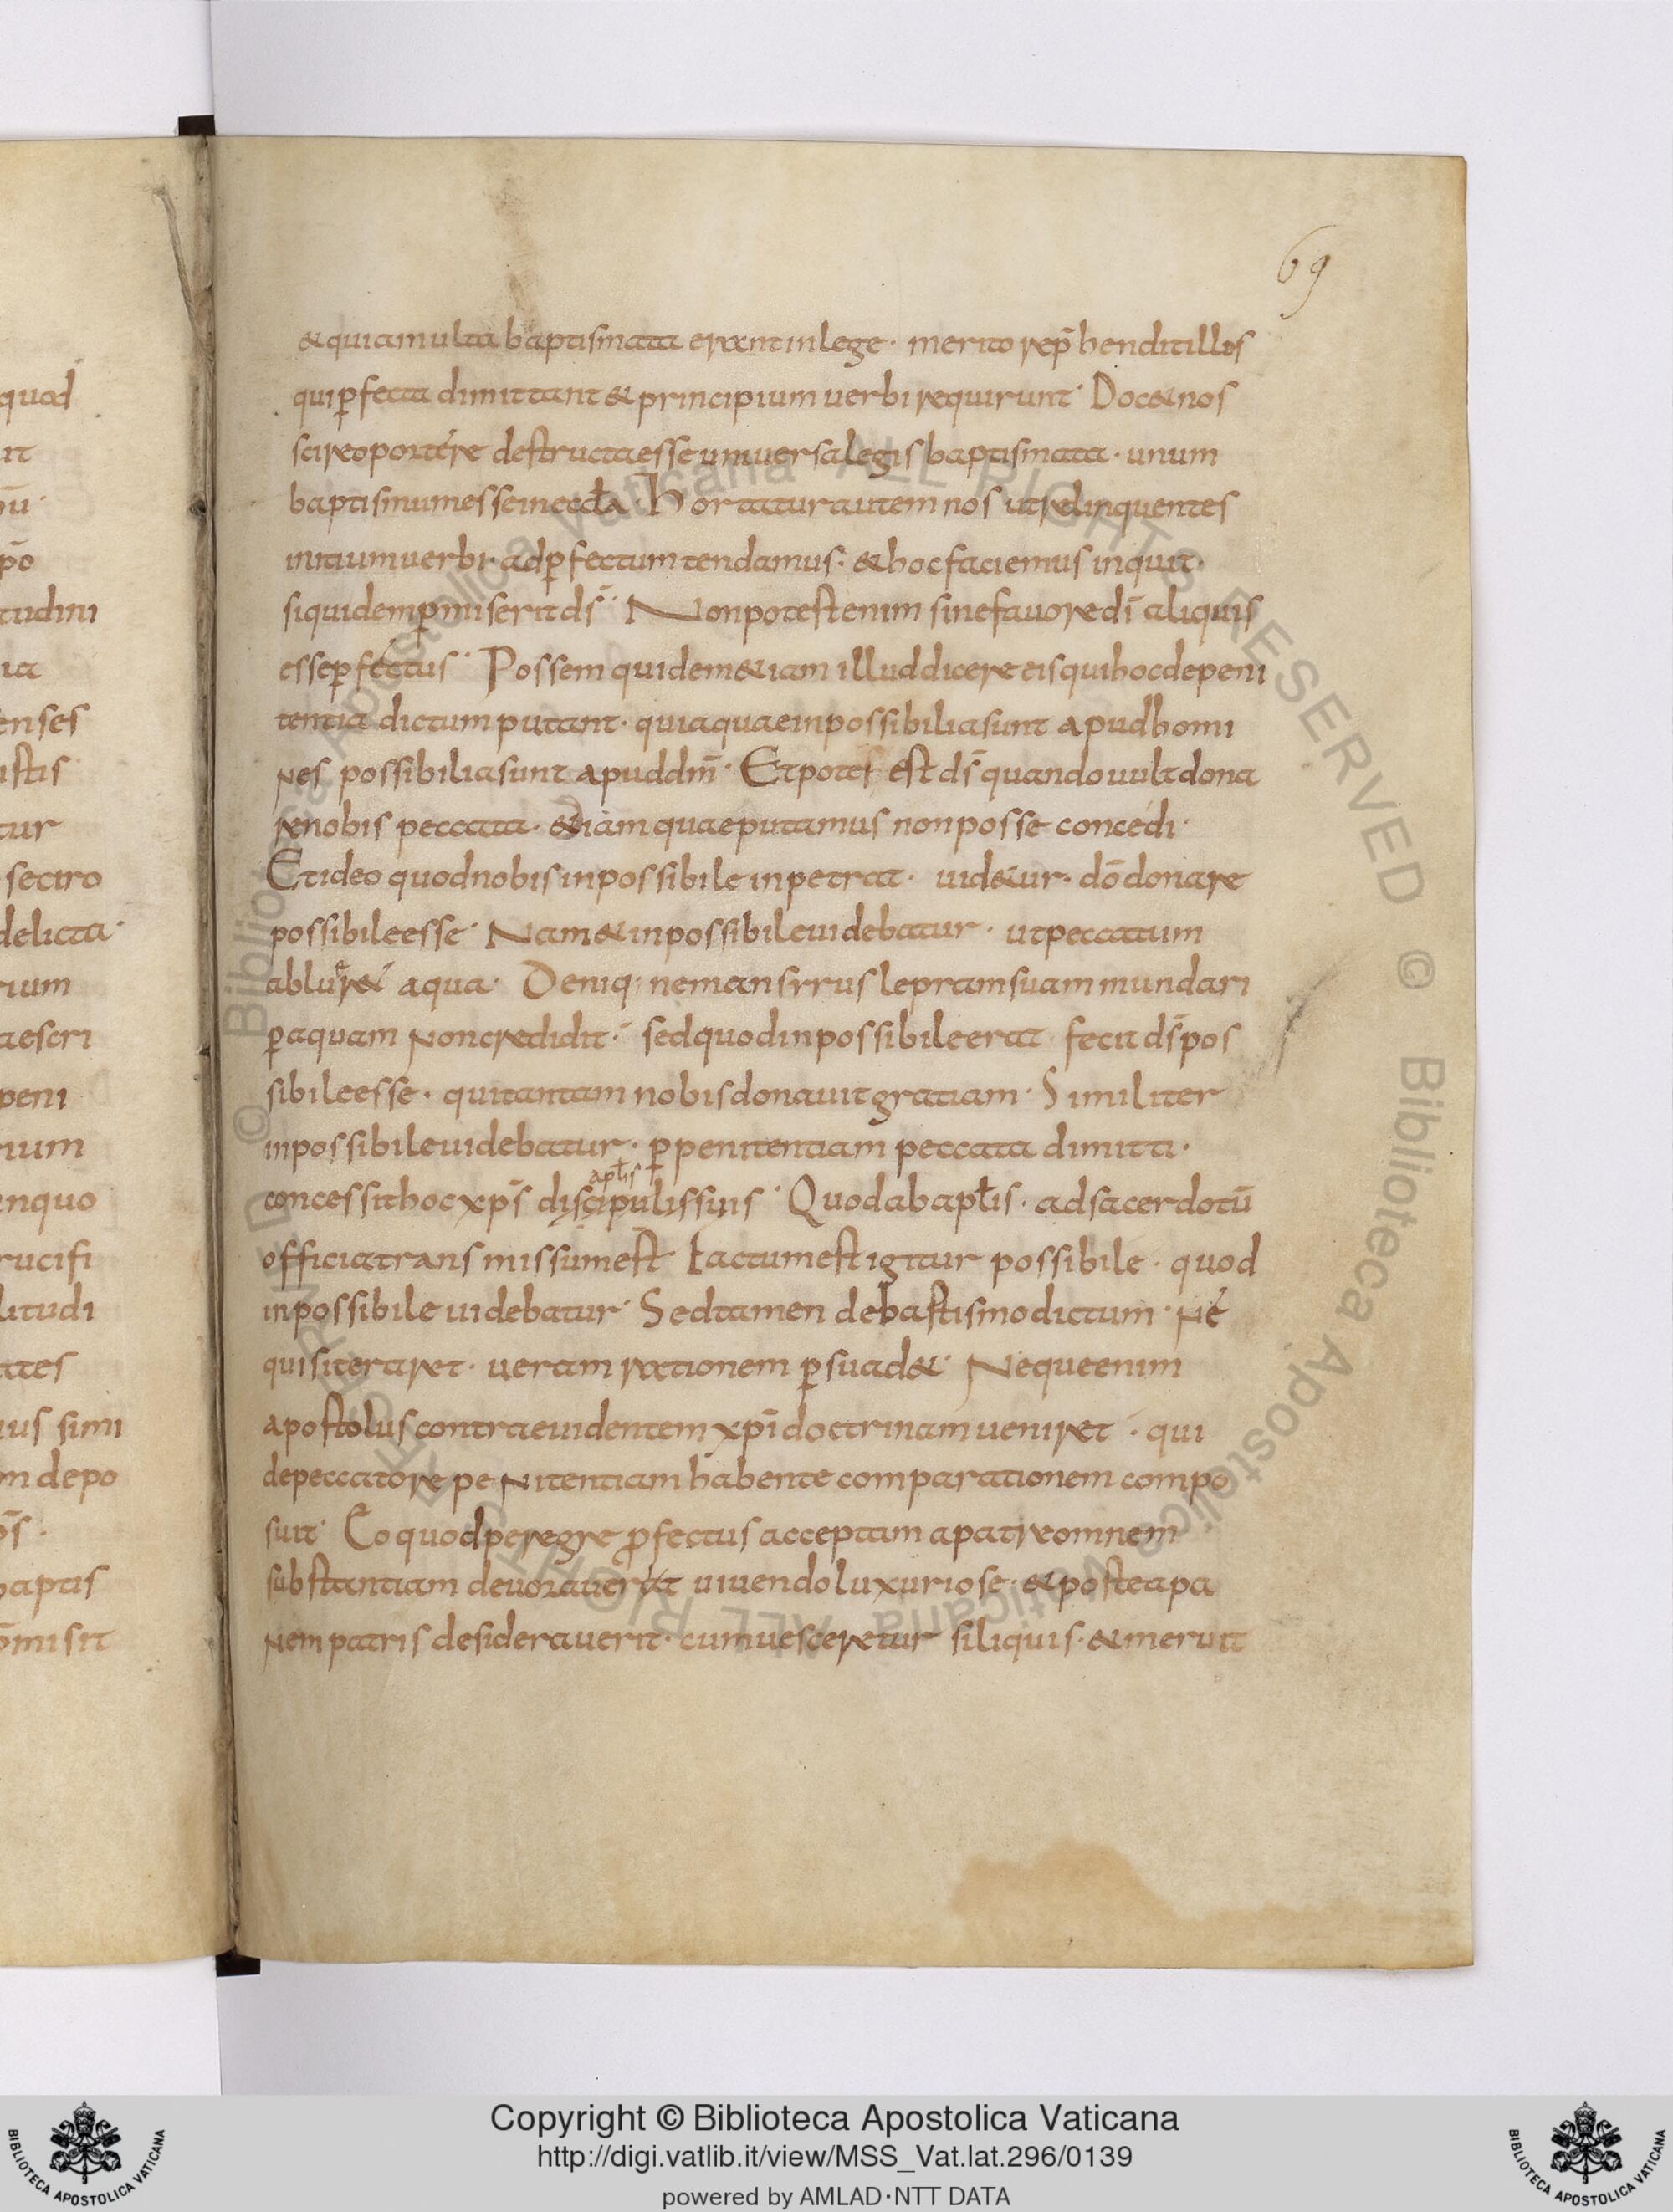 69
quod
& quia multa baptismata erant in lege · merito rep̄hendit illos
qui ꝑfecta dimittant & principium uerbi requirunt · Doc& nos
it
scire oportere destructa esse uniuersa legis baptismata · unum
baptismum esse in eccl̄a · Hortatur autem nos ut relinquentes
p̄o
initium uerbi · ad ꝑfectum tendamus · & hoc faciemus inquit ·
tudini
siquidem ꝑmiserit d̄s · Non potest enim sine fauore d̄i aliquis
ia
esse ꝑfectus · Possem quidem &iam illud dicere eis qui hoc de peni
enses
tentia dictum putant · quia quae inpossibilia sunt apud homi
istis
nes possibilia sunt apud dm̄ · Et potes est d̄s quando uult dona
tur
re nobis peccata · &iam quae putamus non posse concedi ·
sectro
Et ideo quod nobis inpossibile inpetrat · uid&ur · dō donare
delicta ·
possibile esse · Nam & inpossibile uidebatur · ut peccatum
rium
ablueret aqua · Deniq; neman sirrus lepram suam mundari
aescri
ꝑ aquam non credidit · sed quod inpossibile erat fecit d̄s pos
peni
sibile esse · qui tantam nobis donauit gratiam · Similiter
rium
inpossibile uidebatur · ꝑ penitentiam peccata dimitti ·
apl̄is
inquo
concessit hoc xp̄s discipulis suis · Quod ab apl̄is · ad sacerdotū
rucifi
officia transmissum est Factum est igitur possibile · quod
litudi
inpossibile uidebatur · Sed tamen de bastismo dictum · ne
ates
quis iteraret · ueram rationem ꝑsuad& · Neque enim
ius simi
apostolus contra euidentem xp̄i doctrinam ueniret · qui
m depo
de peccatore penitentiam habente comparationem compo
suit · Eo quod peregre ꝓfectus acceptam a patre omnem
baptis
substantiam deuorauerat uiuendo luxuriose · & postea pa
omisit
nem patris desiderauerit · cum uesceretur siliquis · & meruit
© Biblioteca Apostolica Vaticana ALL RIGHTS RESERVED
Copyright © Biblioteca Apostolica Vaticana
http://digi.vatlib.it/view/MSS_Vat.lat.296/0139
powered by AMLAD·NTT DATA
BIBLIOTECA APOSTOLICA VATICANA
BIBLIOTECA APOSTOLICA VATICANA